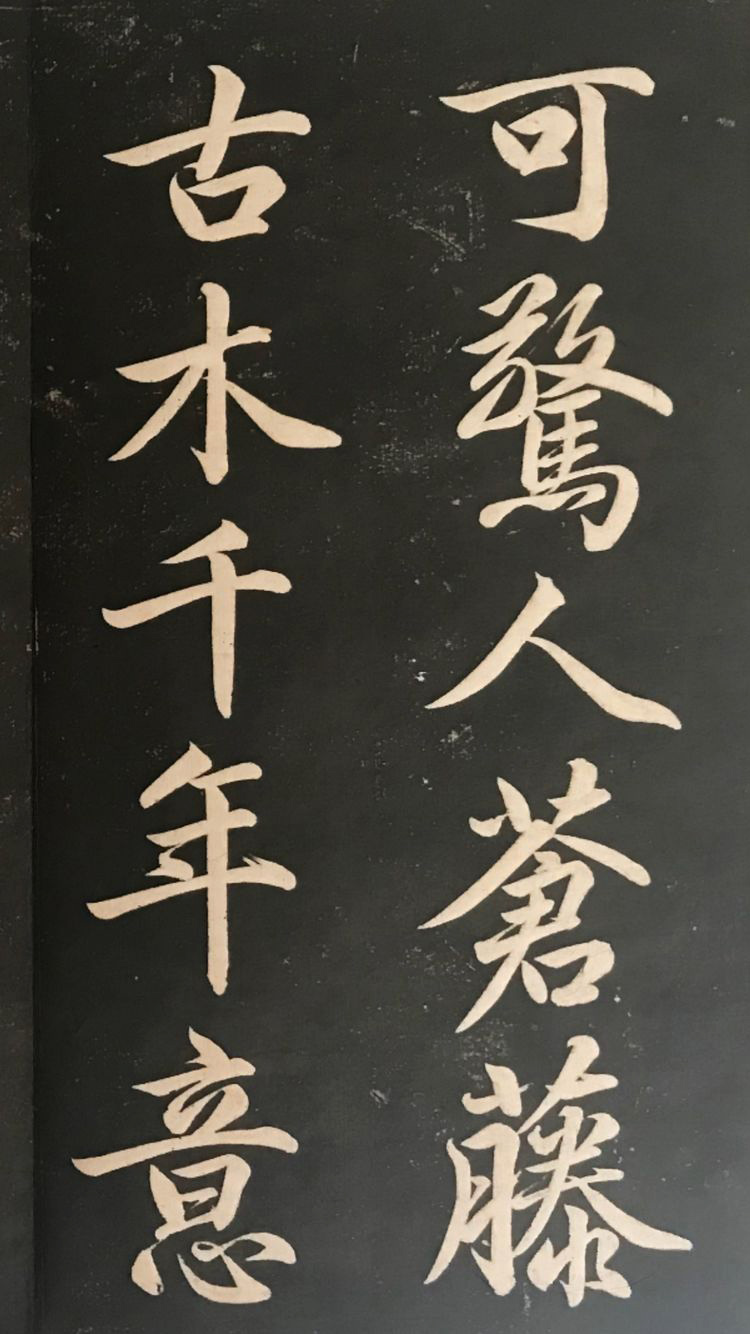 可驚人蒼藤
古木千年意